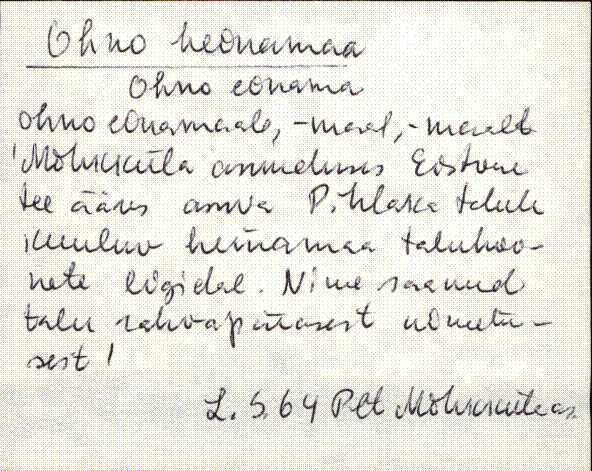 Ohno heinamaa
Ohno einama
Ohno einamaale, -maal, -maalt
'Mõhkküla asunduses Eistvere
tee ääres asuva Pihlaka talule
kuuluv heinamaa taluhoo-
nete ligidal. Nime saanud
talu rahvapärasest nimetu-
sest'
L. S. 64 Plt Mõhkküla as.